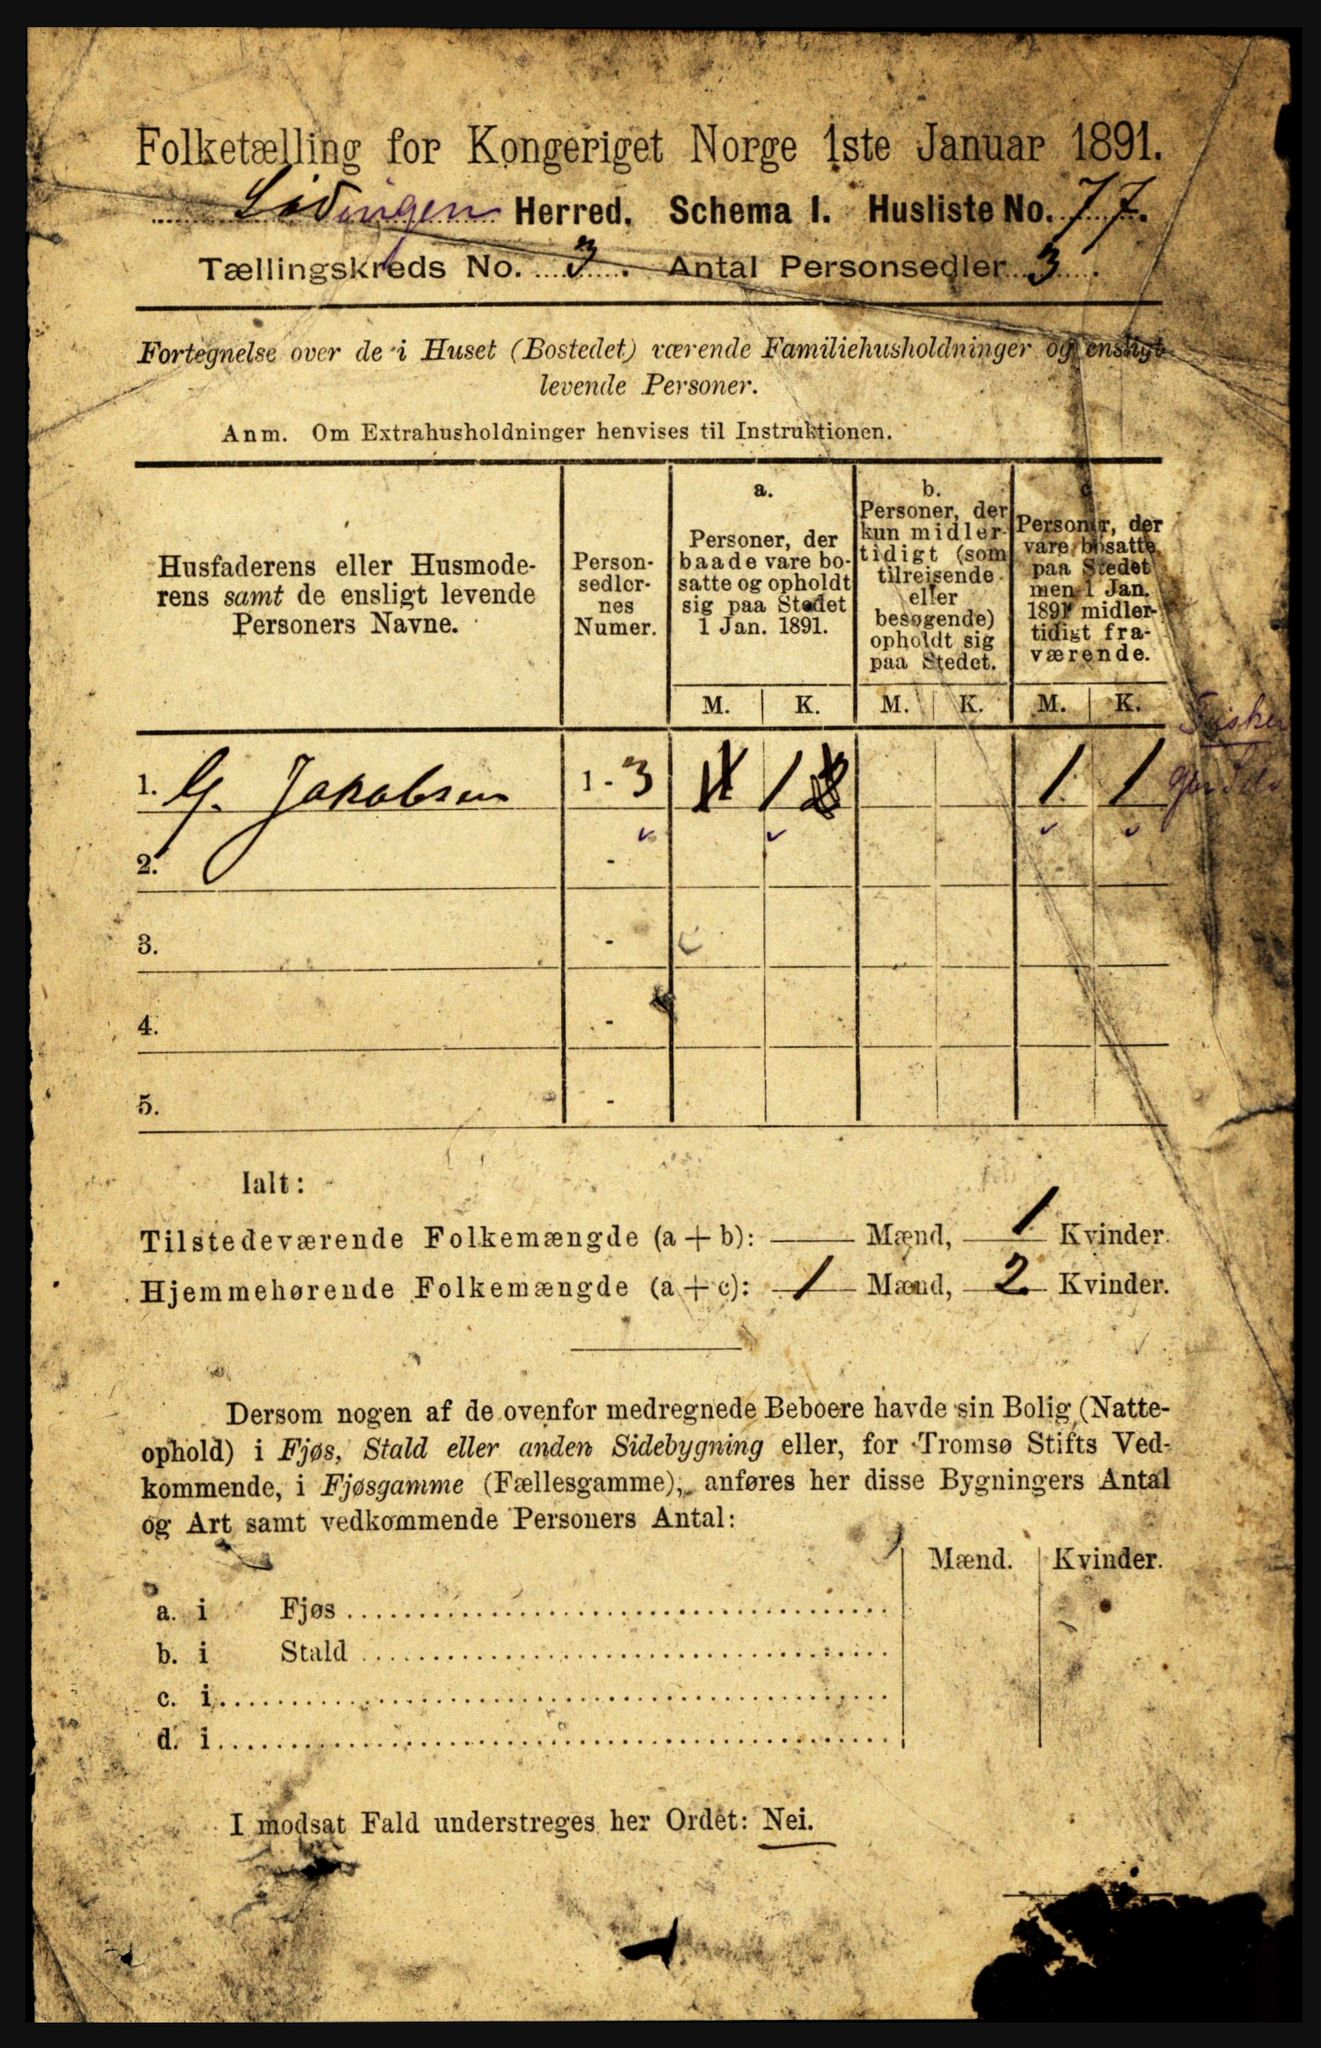 Folketælling for Kongeriget Norge 1ste Januar 1891.
Lødingen Herred. Schema I. Husliste No. 77.
Tællingskreds No. 3. Antal Personsedler 3.
Fortegnelse over de i Huset (Bostedet) værende Familiehusholdninger og ensligt
levende Personer.
Anm. Om Extrahusholdninger henvises til Instruktionen.
Husfaderens eller Husmode-
rens samt de ensligt levende
Personers Navne.
Person-
sedler-
nes
Numer.
a.
Personer, der
baade vare bo-
satte og opholdt
sig paa Stedet
1 Jan. 1891.
b.
Personer, der
kun midler-
tidigt (som
tilreisende
eller
besøgende)
opholdt sig
paa Stedet.
c.
Personer, der
vare bosatte
paa Stedet
men 1 Jan.
1891 midler-
tidigt fra-
værende.
M. K. M. K. M. K.
1. G. Jakobsen 1 - 3 1 1 1
2. -
3. -
4. -
5. -
Ialt:
Tilstedeværende Folkemængde (a + b): Mænd, 1 Kvinder.
Hjemmehørende Folkemængde (a + c): 1 Mænd, 2 Kvinder.
Dersom nogen af de ovenfor medregnede Beboere havde sin Bolig (Natte-
ophold) i Fjøs, Stald eller anden Sidebygning eller, for Tromsø Stifts Ved-
kommende, i Fjøsgamme (Fællesgamme), anføres her disse Bygningers Antal
og Art samt vedkommende Personers Antal:
Mænd. Kvinder.
a. i Fjøs
b. i Stald
c. i
d. i
I modsat Fald understreges her Ordet: Nei.